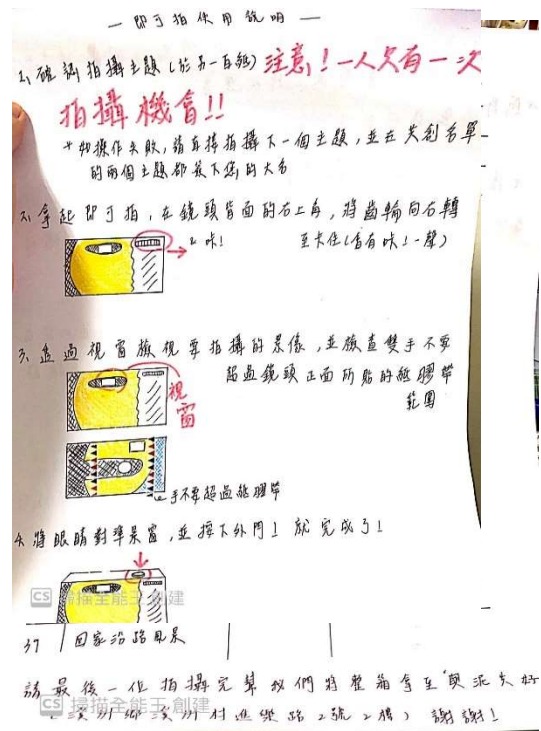 — 即可拍使用說明 —
1. 確認拍攝主題(於另一頁紙) 注意!一人只有一次
拍攝機會!!
*如操作失敗,請直接拍攝下一個主題,並在共創名單
的兩個主題都簽下您的大名
2. 拿起即可拍,在鏡頭背面的右上角,將齒輪向右轉
至卡住(會有咔!一聲)
咔!
3. 透過視窗檢視要拍攝的景像,並檢查雙手不要
超過鏡頭正面所貼的紙膠帶
範圍
視窗
手不要超過紙膠帶
4. 將眼睛對準景窗,並按下外門!就完成了!
CS 掃描全能王 創建
37 回家沿路風景
請最後一位拍攝完幫我們將整箱拿至"與泥夫好
(溪州鄉溪州村進樂路2號2樓) 謝謝!
CS 掃描全能王 創建